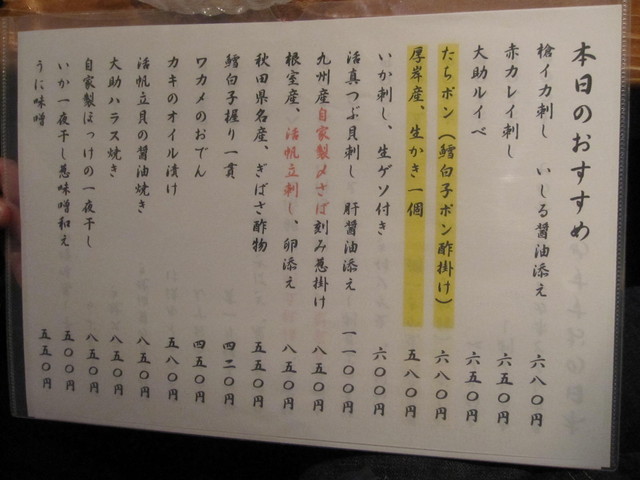 本日のおすすめ
槍イカ刺し　いしる醤油添え　六八〇円
赤カレイ刺し　六五〇円
大助ルイベ　六五〇円
たらポン（鱈白子ポン酢掛け）　六八〇円
厚岸産、生かき一個　五八〇円
いか刺し、生ゲソ付き　六〇〇円
活真つぶ貝刺し　肝醤油添え　一一〇〇円
九州産自家製〆さば刻み葱掛け　八五〇円
根室産、活帆立刺し、卵添え　八五〇円
秋田県名産、ぎばさ酢物　五五〇円
鱈白子握り一貫　四二〇円
ワカメのおでん　四五〇円
カキのオイル漬け　五八〇円
活帆立貝の醤油焼き　八五〇円
大助ハラス焼き　八五〇円
自家製ほっけの一夜干し　八五〇円
いか一夜干し葱味噌和え　五〇〇円
うに味噌　五五〇円